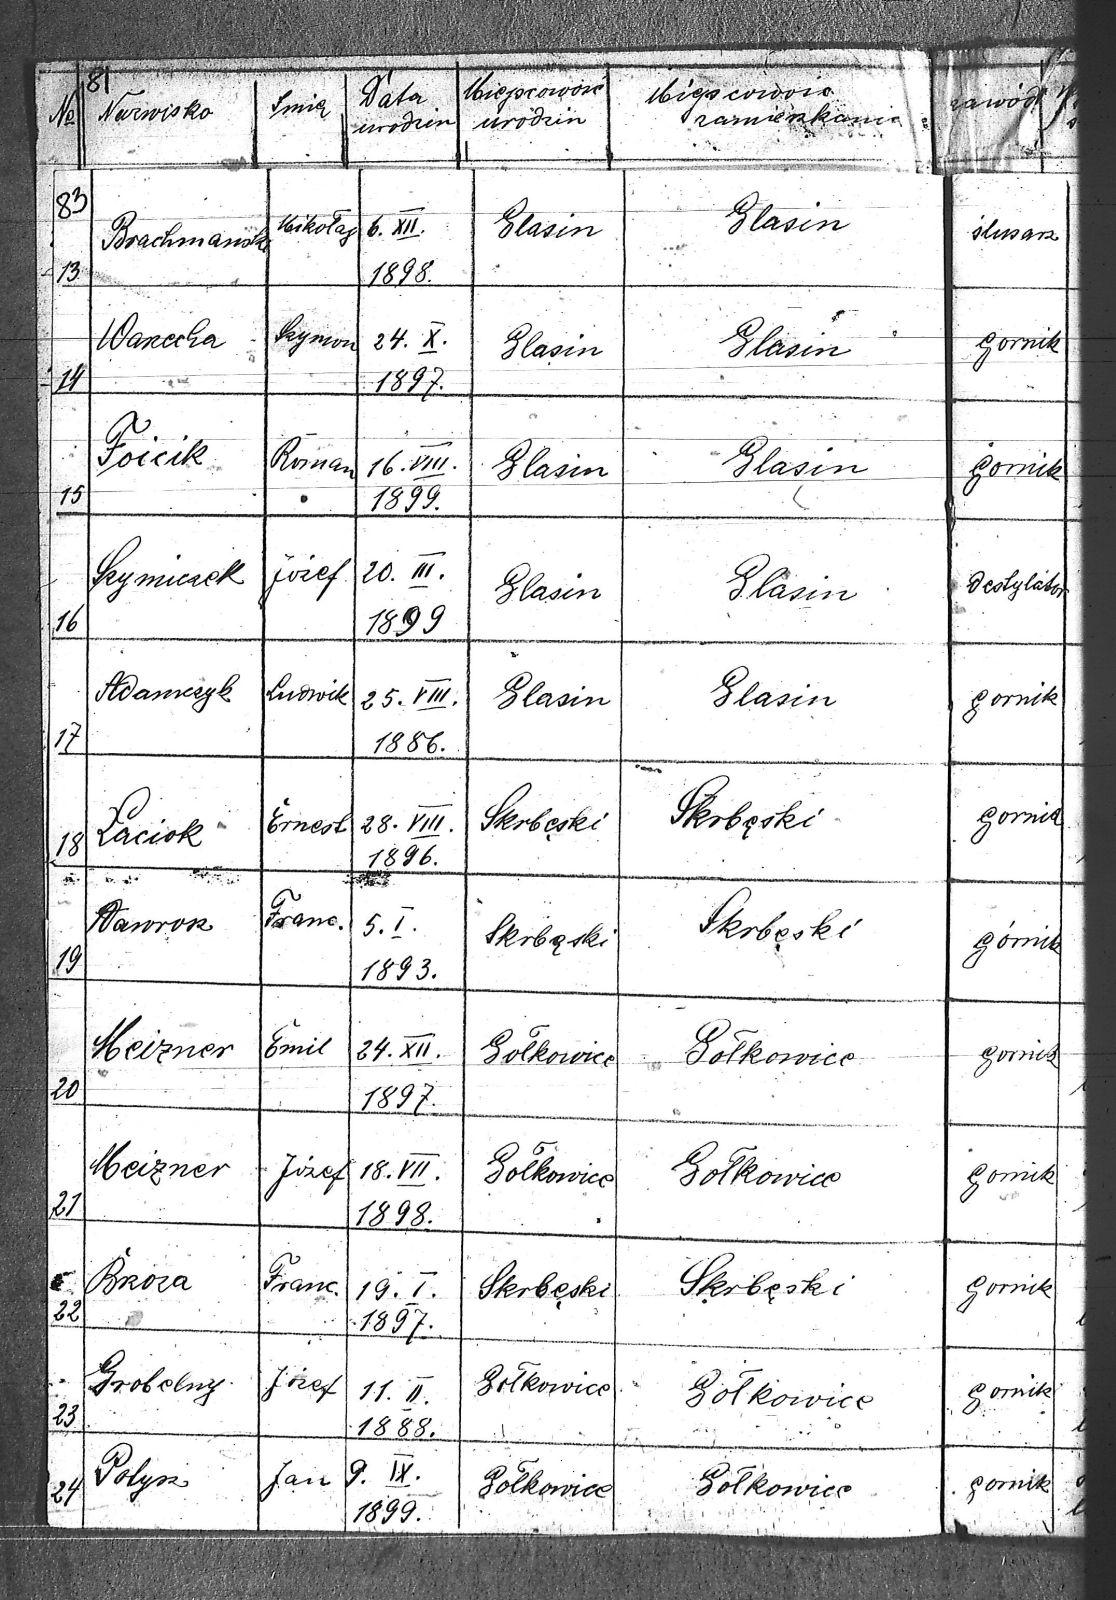 81
№ Nazwisko Imię Data urodzin Miejscowość urodzin Miejscowość zamieszkania zawód
83
13 Brachmański Mikołaj 6. XII. 1898. Glasin Glasin ślusarz
14 Warecha Szymon 24. X. 1897. Glasin Glasin gornik
15 Foicik Roman 16. VIII. 1899. Glasin Glasin gornik
16 Szymiczek Józef 20. III. 1899 Glasin Glasin destylator
17 Adamczyk Ludwik 25. VIII. 1886. Glasin Glasin gornik
18 Łaciok Ernest 28. VIII. 1896. Skrbęski Skrbęski gornik
19 Nawrok Franc. 5. I. 1893. Skrbąski Skrbęski górnik
20 Meizner Emil 24. XII. 1897. Gołkowice Gołkowice gornik
21 Meizner Józef 18. VII. 1898. Gołkowice Gołkowice gornik
22 Broza Franc. 19. I. 1897. Skrbęski Skrbęski gornik
23 Grobelny Józef 11. II. 1888. Gołkowice Gołkowice gornik
24 Polyk Jan 9. IX. 1899. Gołkowice Gołkowice gornik